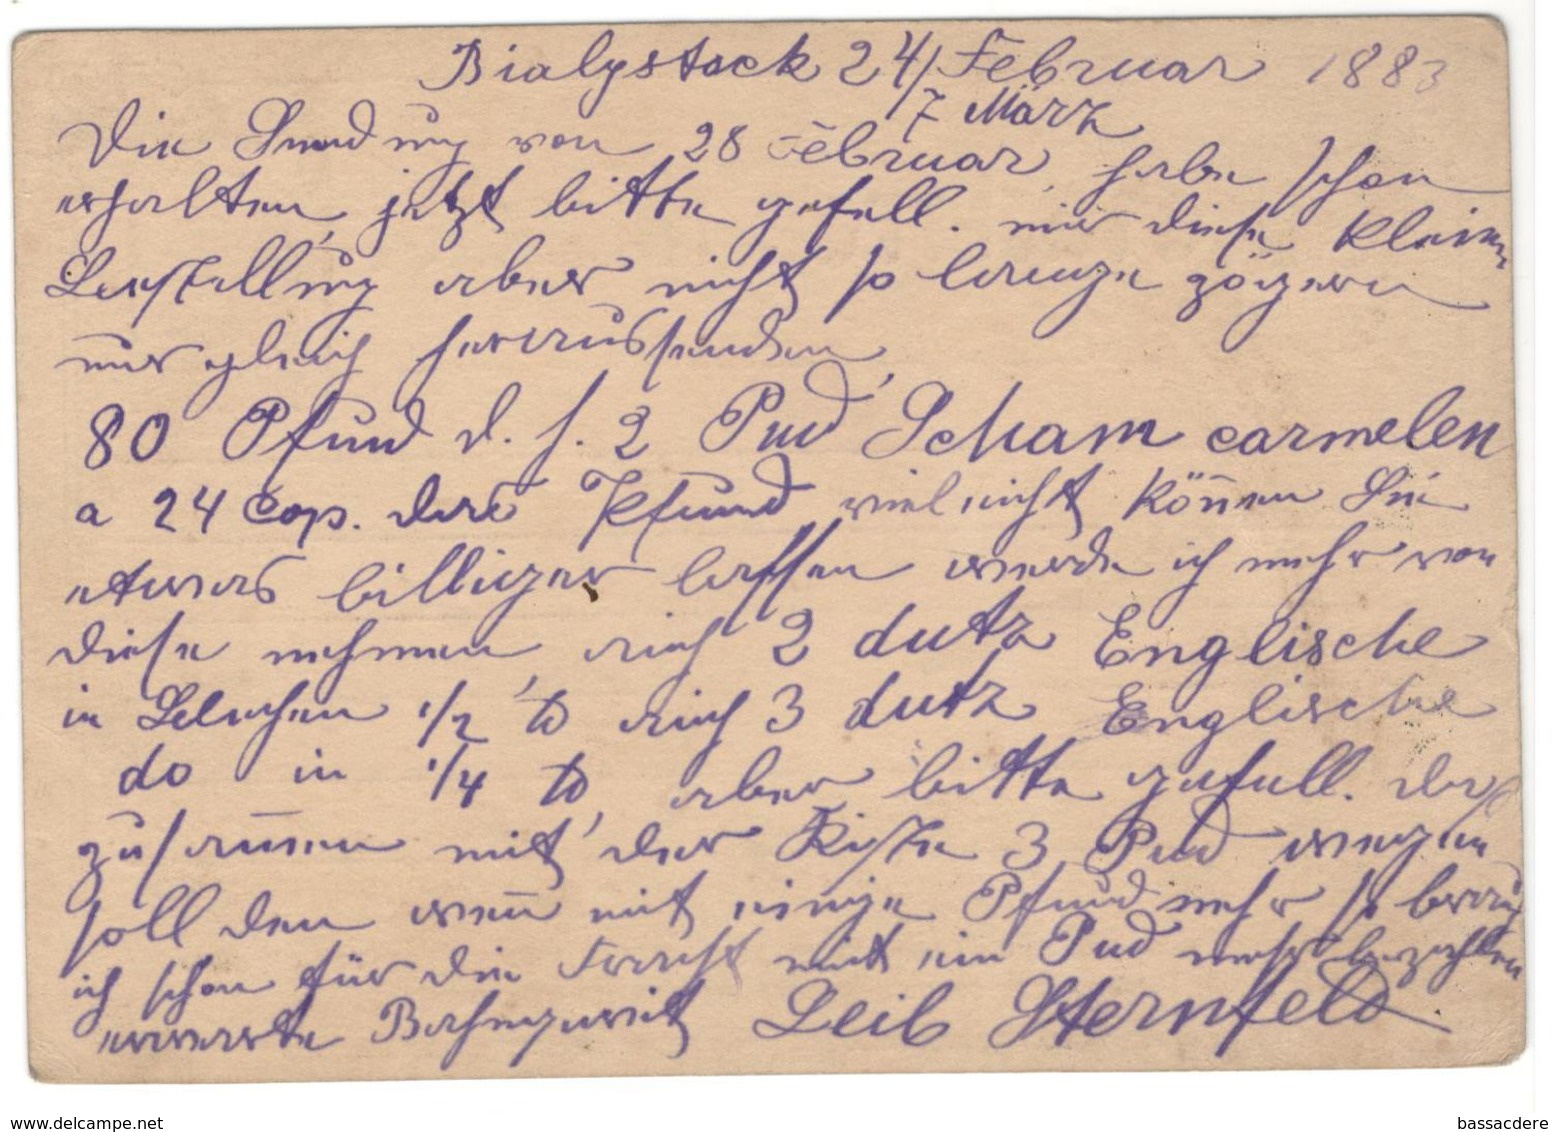 Bialystock 24/ Februar 1883
7 März
Die Sendung von 28 Februar, habe schon
erhalten, jetzt bitte gefell. mir diese kleine
Bestellung aber nicht so lange zögern
nur gleich heraussenden,
80 Pfund d. h. 2 Pud Scham carmelen
a 24 Cop. das Pfund vielleicht können Sie
etwas billiger lassen werde ich mehr von
diese nehmen, auch 2 dutz Englische
in 1/2 ℔, auch 3 dutz Englische
do in 1/4 ℔, aber bitte gefell. das
zusammen mit der Kiste 3 Pud wegen
soll den wen̄ mit einige Pfund mehr so brauch
ich schon für die Fracht mit ein Pud mehr bezahlen
erwarte Leib Sternfeld
www.delcampe.net
bassacdere